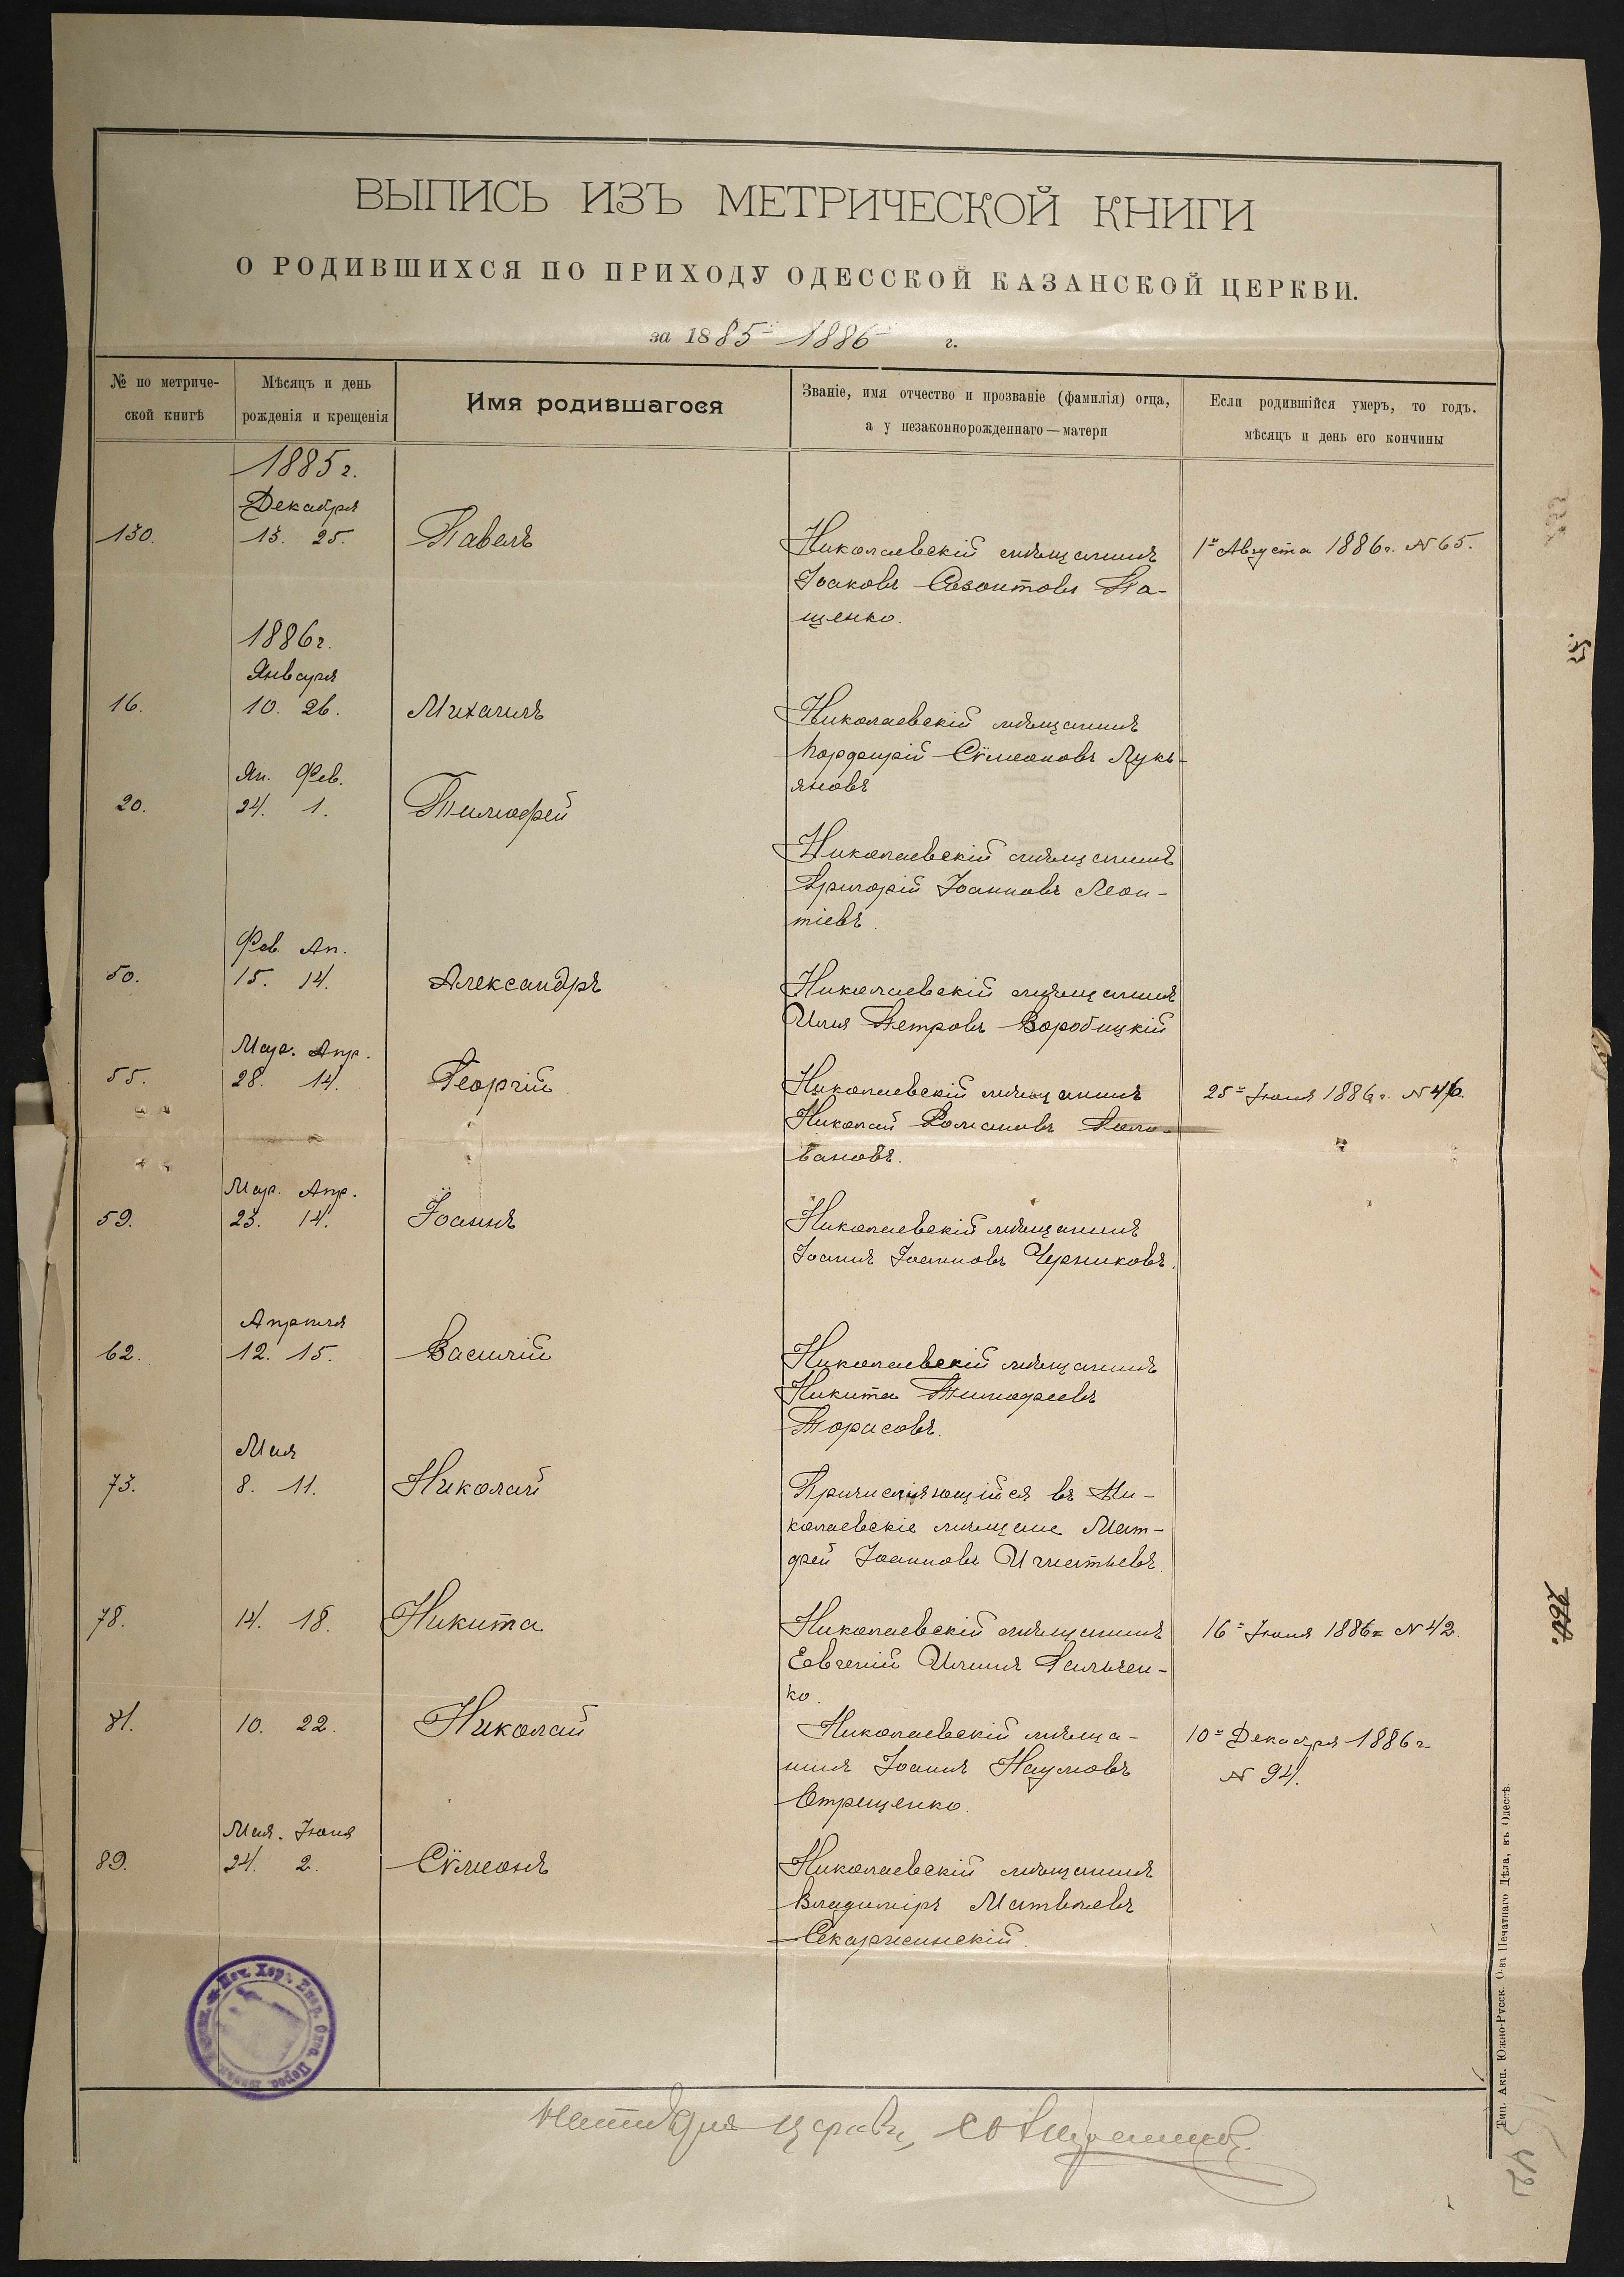 ВЫПИСЬ ИЗЪ МЕТРИЧЕСКОЙ КНИГИ
О РОДИВШИХСЯ ПО ПРИХОДУ ОДЕССКОЙ КАЗАНСКОЙ ЦЕРКВИ.
за 1885 - 1886 г.
№ по метриче-
ской книгѣ
Мѣсяцъ и день
рожденія и крещенія
Имя родившагося
Званіе, имя отчество и прозваніе (фамилія) отца,
а у незаконнорожденнаго — матери
Если родившійся умеръ, то годъ.
мѣсяцъ и день его кончины
1885 г.
Декабря
130. 13. 25. Павелъ Николаевскій мѣщанинъ 1го Августа 1886 г. N 65.
Іоаковъ Созонтовъ Па-
щенко.
1886 г.
Января
16. 10. 26. Михаилъ Николаевскій мѣщанинъ
Порфирій Сѵмеоновъ Лукь-
яновъ
Ян. Фев.
20. 24. 1. Тимофей
Николаевскій мѣщанинъ
Григорій Іоанновъ Леон-
тіевъ.
Фев. Ап.
50. 15. 14. Александръ Николаевскій мѣщанинъ
Илія Петровъ Воробицкій
Мар. Апр.
55. 28. 14. Георгій Николаевскій мѣщанинъ 25го Іюня 1886 г. N 46.
Николай Романовъ Голо-
вановъ.
Мар. Апр.
59. 23. 14. Іоаннъ Николаевскій мѣщанинъ
Іоаннъ Іоанновъ Черниковъ.
Апрѣля
62. 12. 15. Василій Николаевскій мѣщанинъ
Никита Тимофеевъ
Торасовъ.
Мая
73. 8. 11. Николай Причисляющійся въ Ни-
колаевскіе мѣщане Мат-
фей Іоанновъ Игнатьевъ.
78. 14. 18. Никита Николаевскій мѣщанинъ 16го Іюня 1886 г. N 42.
Евгеній Илiинъ Гальчен-
ко.
81. 10. 22. Николай Николаевскій мѣща- 10го Декабря 1886 г.
нинъ Іоаннъ Наумовъ N 94.
Отрещенко.
Мая. Іюня
89. 24. 2. Сѵмеонъ Николаевскій мѣщанинъ
Владиміръ Матвѣевъ
Скаржинскій.
церкви,
Тип. Акц. Южно-Русск. О-ва Печатнаго Дѣла, въ Одессѣ.
42